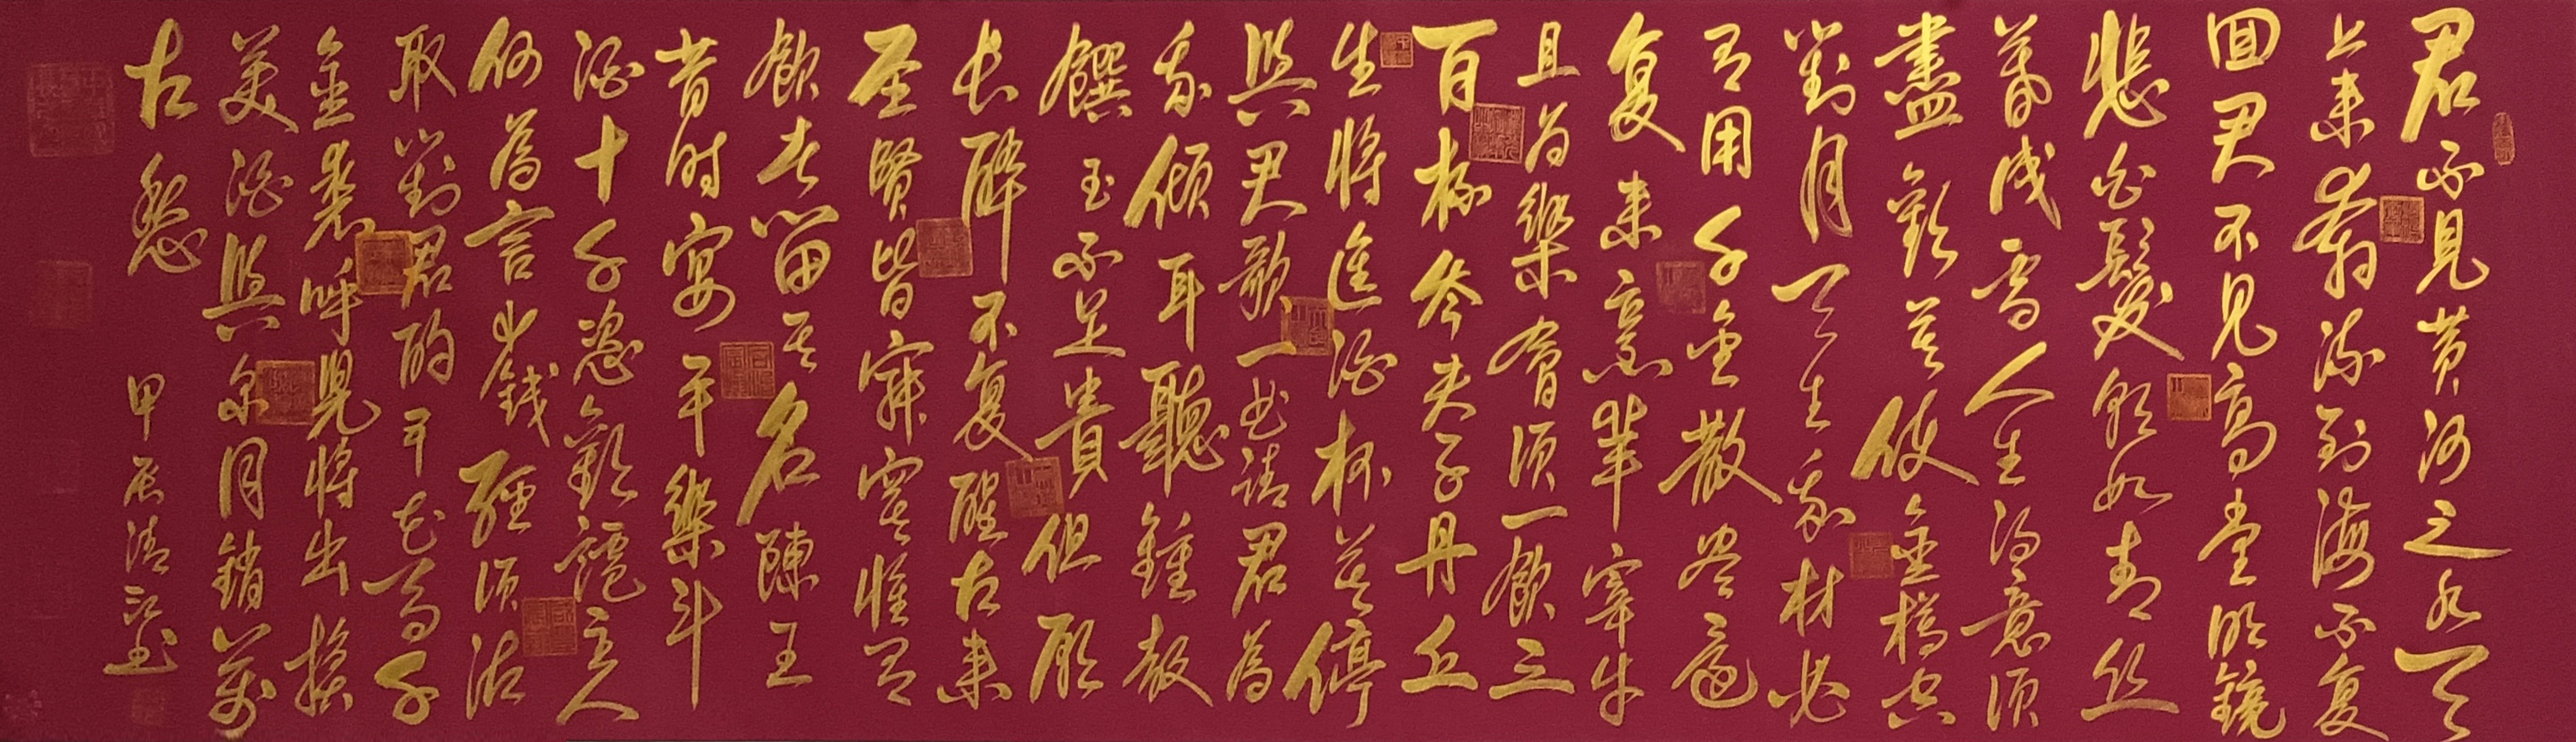 君不見黄河之水天
上来奔流到海不复
回君不見高堂明鏡
悲白髮朝如青丝
暮成雪人生得意须
盡歡莫使金樽空
對月天生我材必
有用千金散尽還
复来烹羊宰牛
且为樂會须一飲三
百杯岑夫子丹丘
生将進酒杯莫停
與君歌一曲請君為
我傾耳聽鐘鼓
饌玉不足貴但願
长醉不复醒古来
圣賢皆寂寞惟有
飲者留其名陳王
昔时宴平樂斗
酒十千恣歡謔主人
何為言少錢徑须沽
取對君酌五花马千
金裘呼児将出换
美酒與尔同銷萬
古愁
甲辰